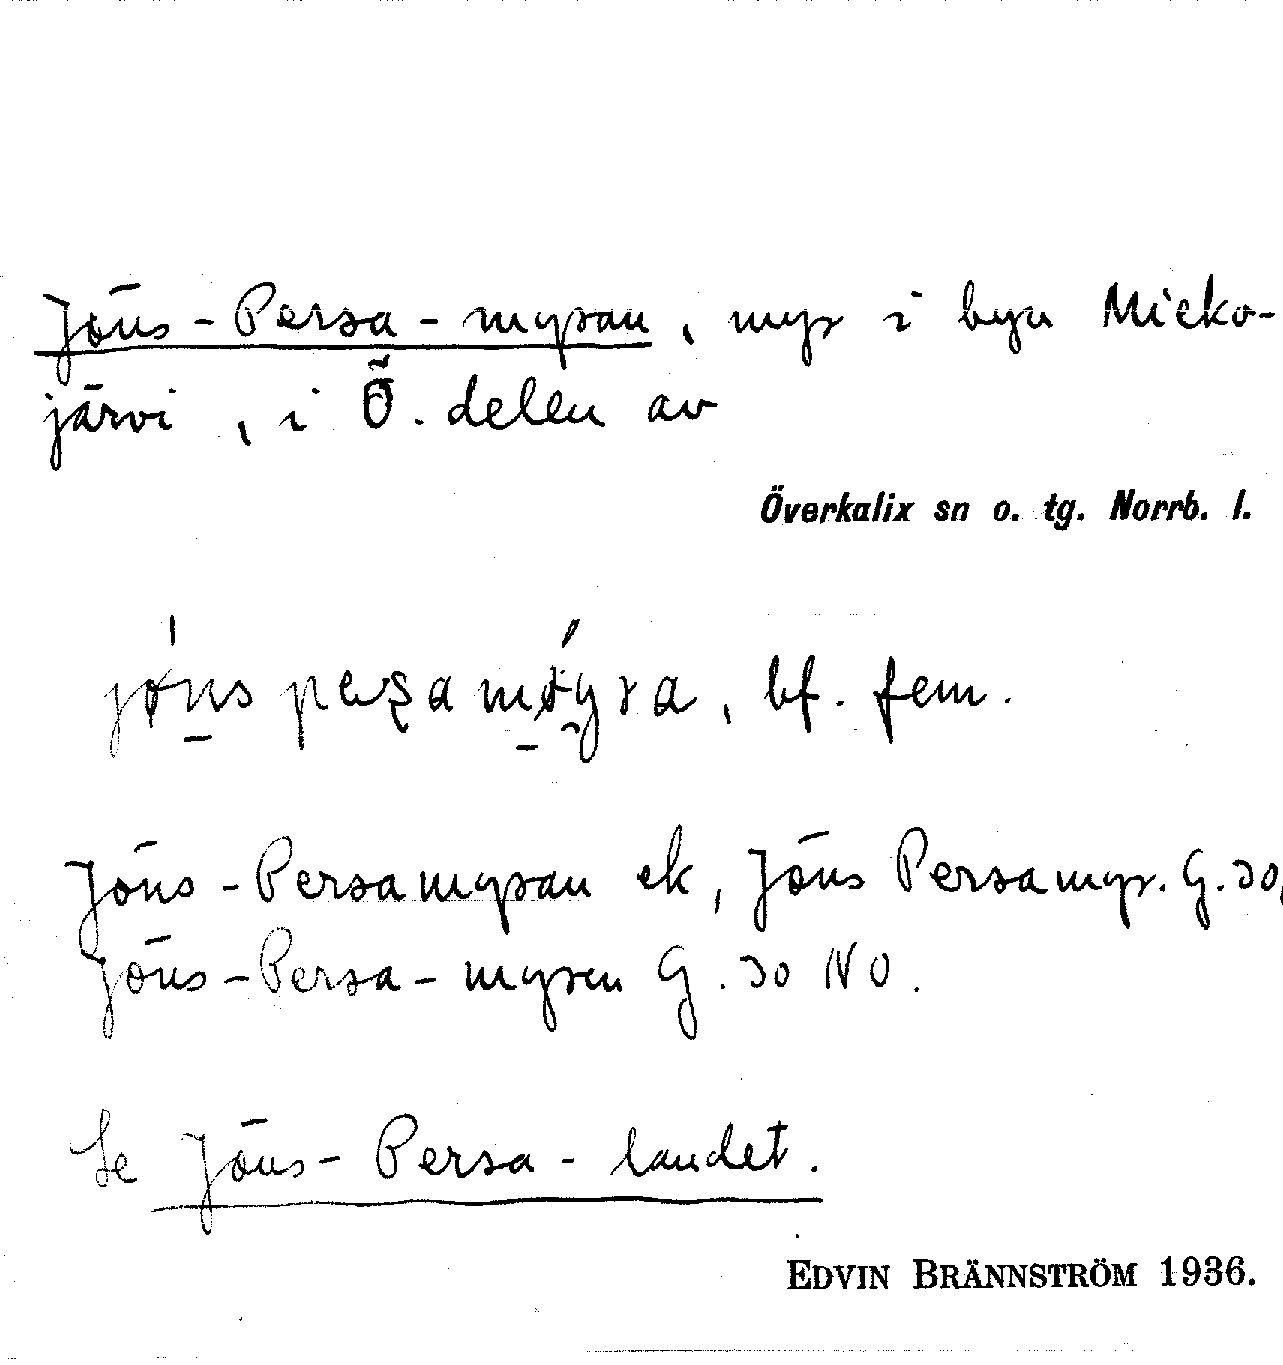 Jöns-Persa-myran, myr i byn Micko-
järvi, i Ö. delen av
Överkalix sn o. tg. Norrb. l.
bf. fem.
Jöns-Persamyran ek, Jöns Persamyr. G. 30,
Jöns-Persa-myren G. 30 NO.
Se Jöns-Persa-landet.
EDVIN BRÄNNSTRÖM 1936.